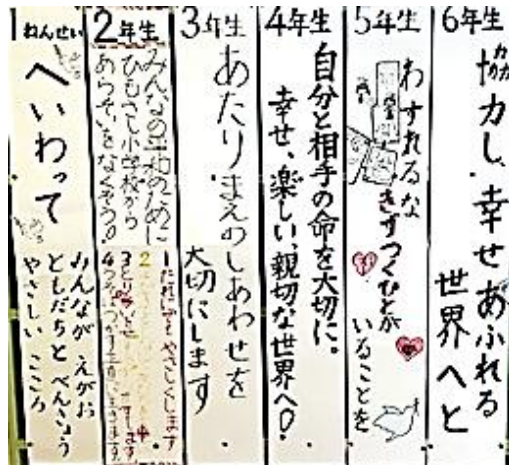 1ねんせい
へいわって
みんなが えがお
ともだちと べんきょう
やさしい こころ
2年生
みんなの平和のために
ひもさし小学校から
あらそいをなくそう!
1だれにでもやさしくします
3年生
あたりまえのしあわせを
大切にします
4年生
自分と相手の命を大切に。
幸せ、楽しい、親切な世界へ!
5年生
わすれるな
きずつくひとが
いることを
6年生
協力し、幸せあふれる
世界へと